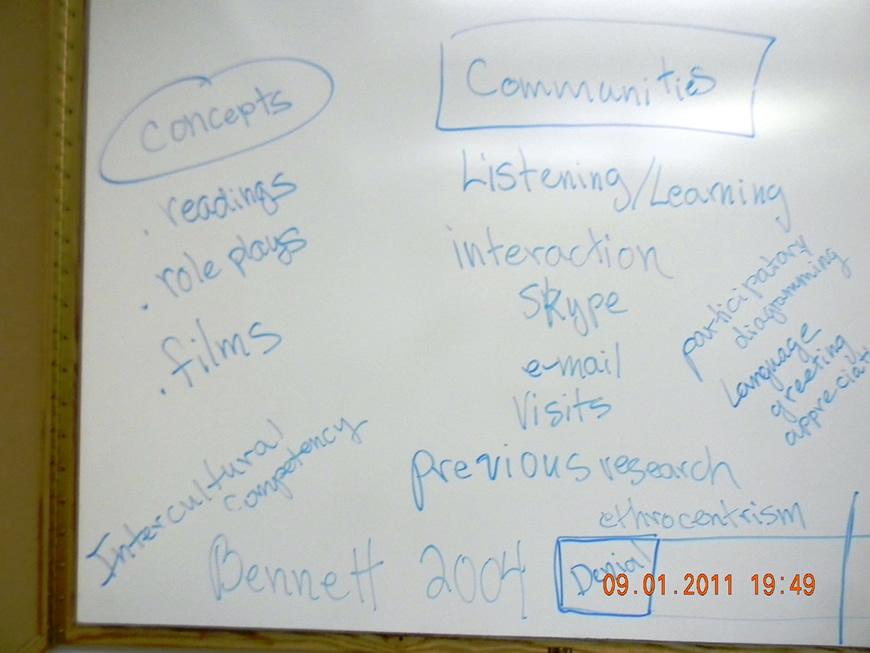 Concepts
. readings
. role plays
. films
Intercultural
competency
Communities
Listening/Learning
interaction
Skype
e-mail
Visits
previous research
participatory
diagramming
Language
greeting
appreciati
ethrocentrism
Bennett 2004
Denial
09.01.2011 19:49